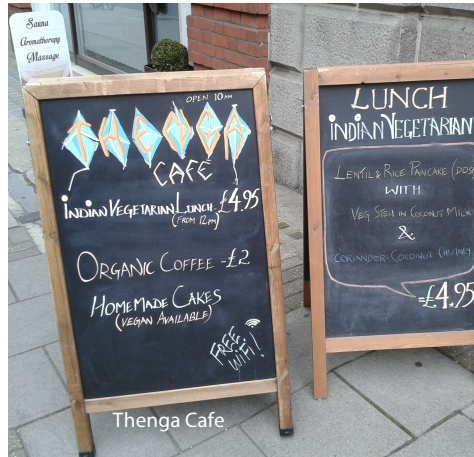 Sauna
Aromatherapy
Massage
OPEN 10AM
THENGA
CAFÉ
INDIAN VEGETARIAN LUNCH £4.95
(FROM 12PM)
ORGANIC COFFEE - £2
HOMEMADE CAKES
(VEGAN AVAILABLE)
FREE
WIFI!
LUNCH
INDIAN VEGETARIAN
LENTIL & RICE PANCAKE (DOSA
WITH
VEG STEW IN COCONUT MILK
&
CORIANDER-COCONUT CHUTNEY
=£4.95
Thenga Cafe